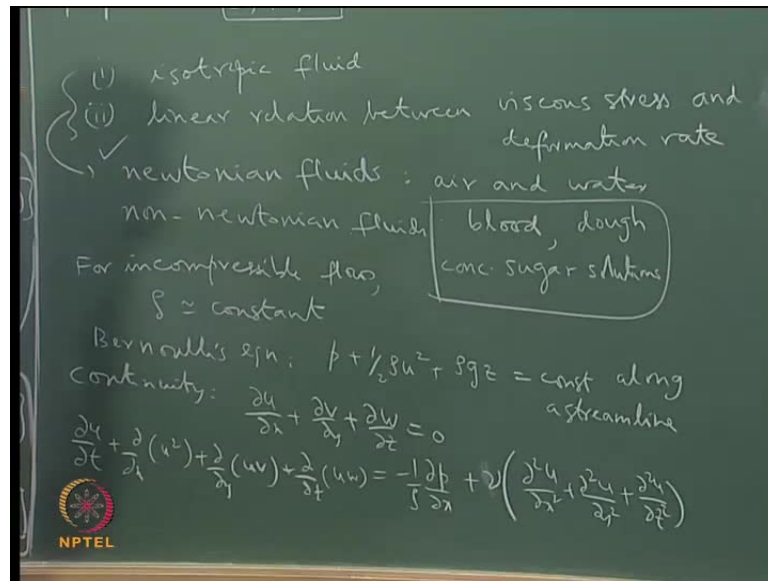 (i) isotropic fluid
(ii) linear relation between viscous stress and
deformation rate
✓ newtonian fluids : air and water
non-newtonian fluids blood, dough
conc. sugar solutions
For incompressible flow,
ρ ≃ constant
Bernoulli's eqn: p + 1/2 ρu² + ρgz = const along
a streamline
continuity: ∂u/∂x + ∂v/∂y + ∂w/∂z = 0
∂u/∂t + ∂/∂x (u²) + ∂/∂y (uv) + ∂/∂z (uw) = -1/ρ ∂p/∂x + ν(∂²u/∂x² + ∂²u/∂y² + ∂²u/∂z²)
NPTEL